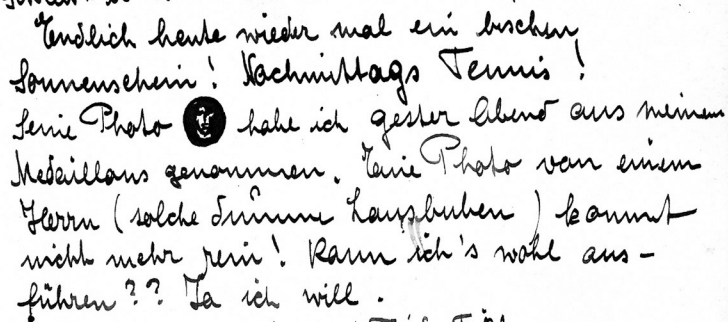 Endlich heute wieder mal ein bischen
Sonnenschein! Nachmittags Tennis!
Seine Photo habe ich gester Abend aus meinem
Medaillons genommen. Eine Photo von einem
Herrn (solche dumme Lausbuben) kommt
nicht mehr rein! Kann ich's wohl aus-
führen?? Ja ich will.